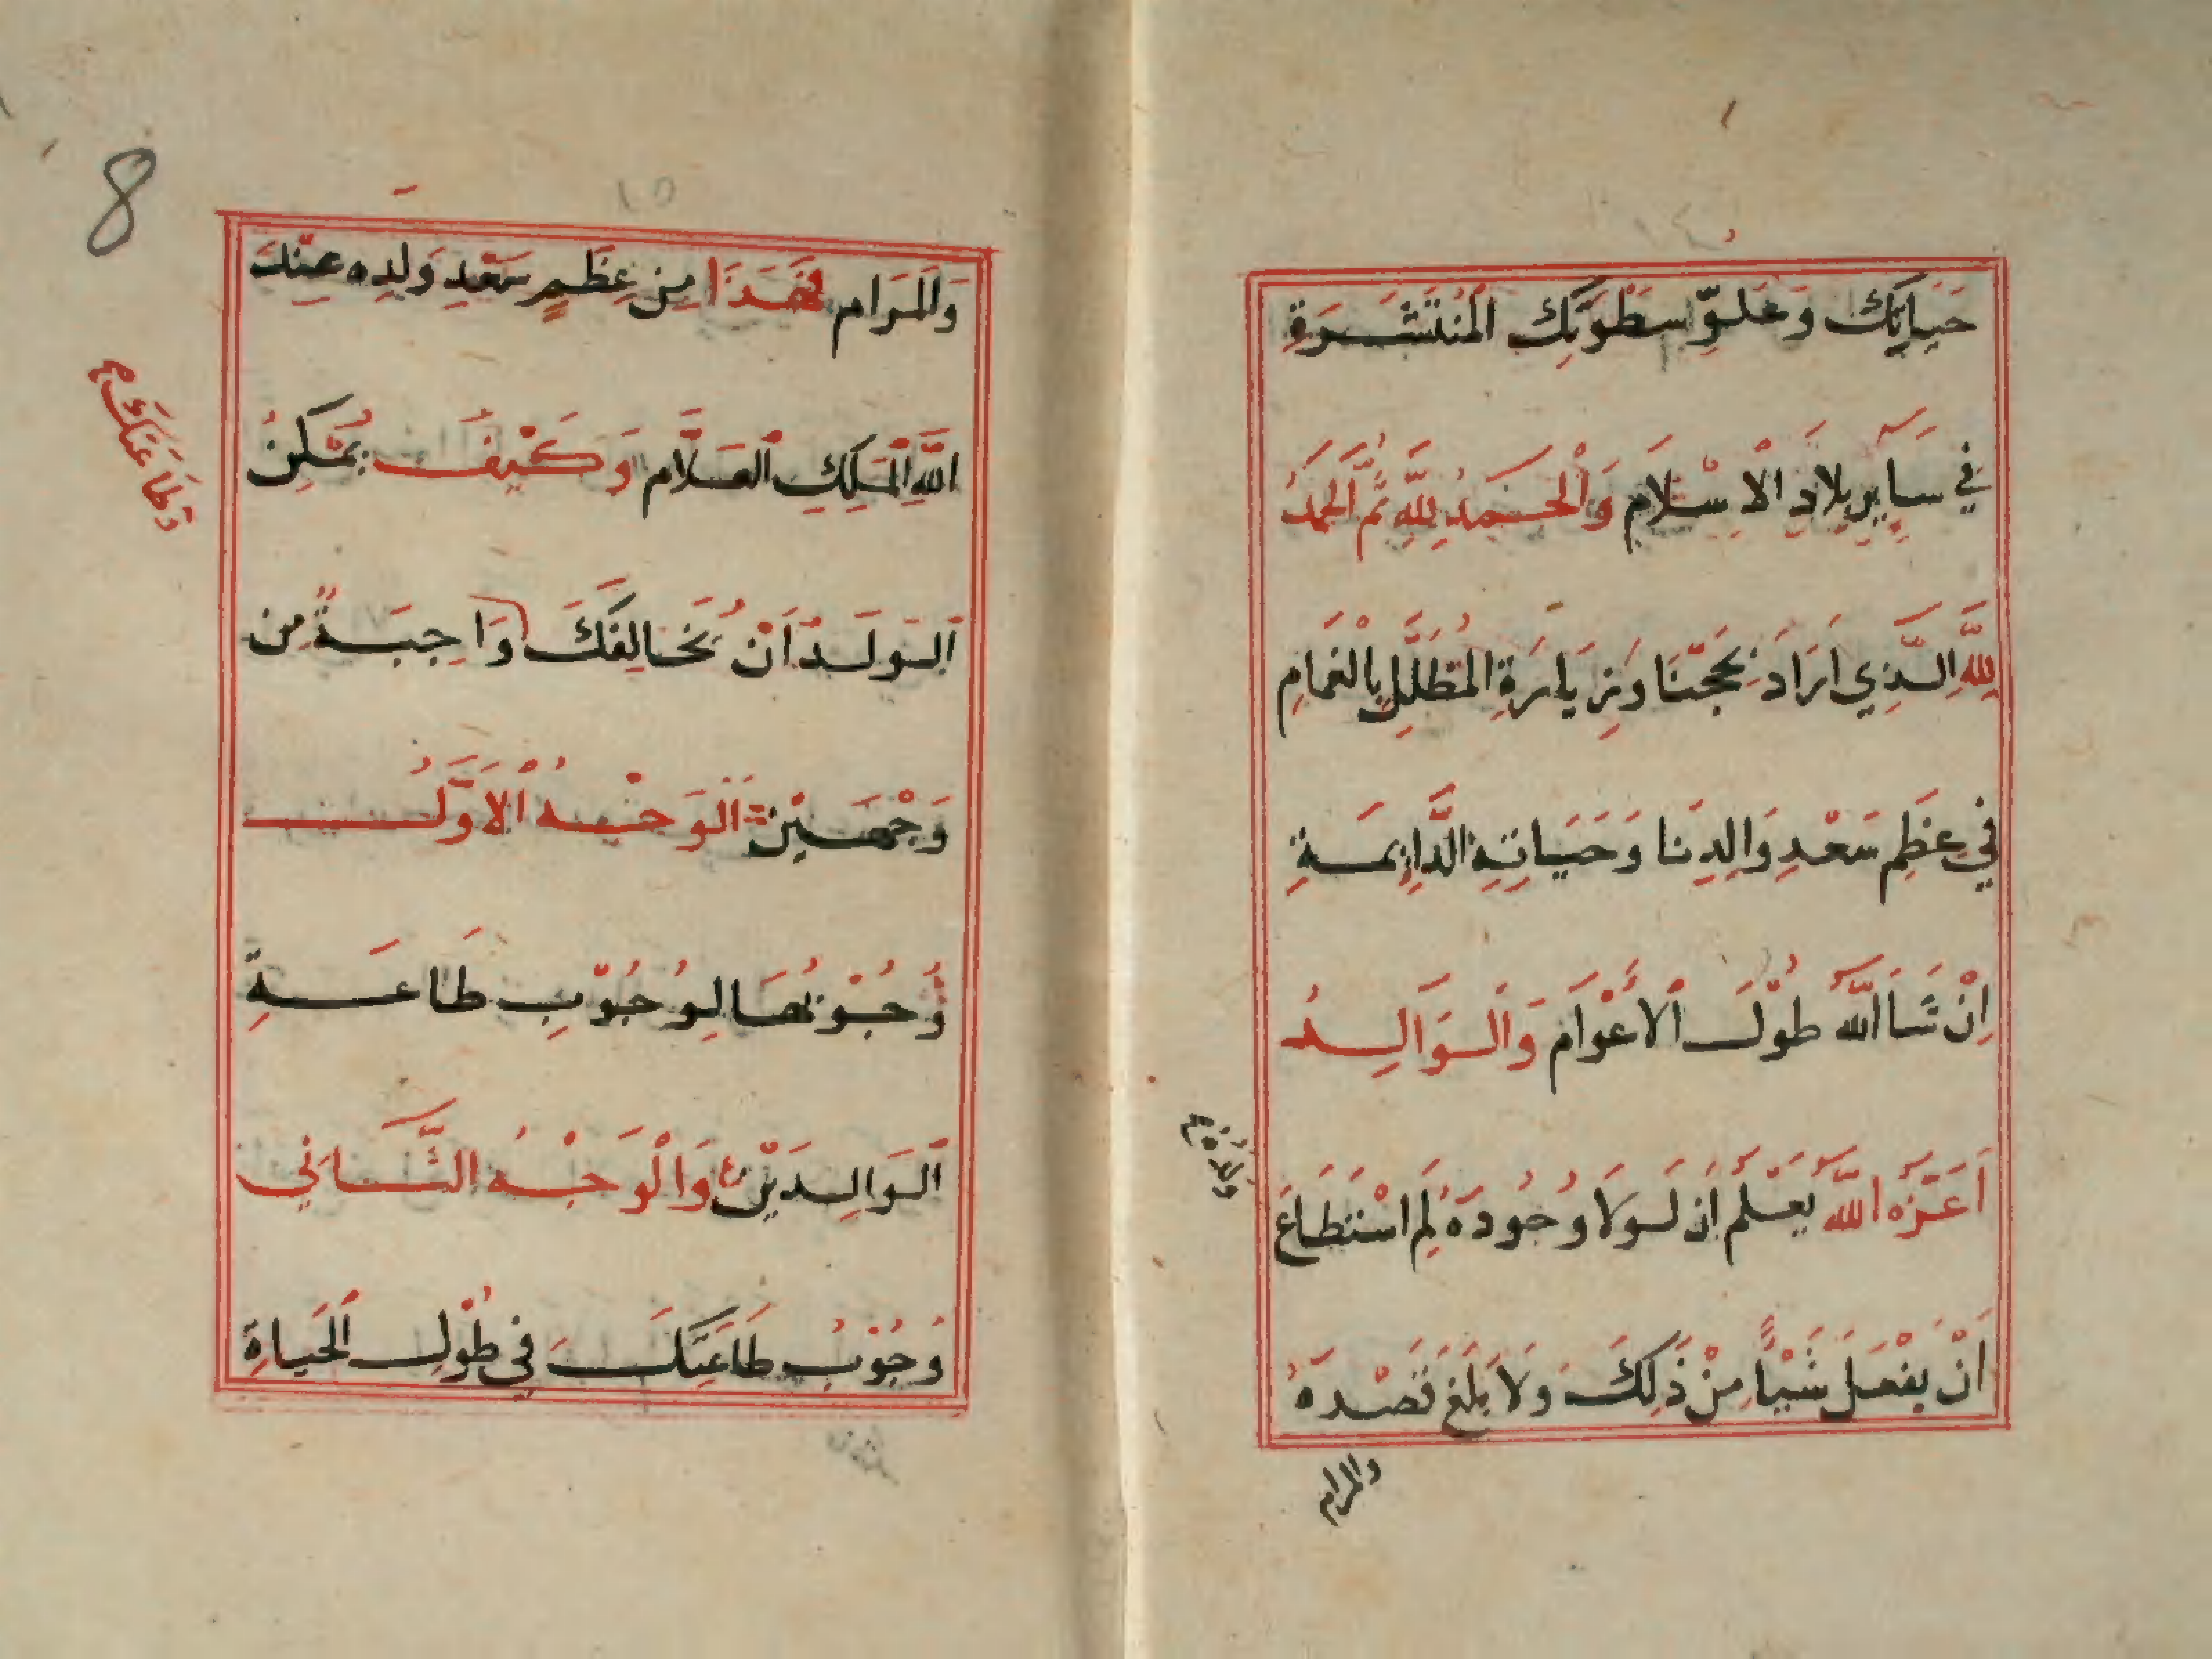 حَيَاتِكَ وَعُلُوِّ سَطْوَتِكَ الْمُنْتَشَرَةِ
فِي سَآيِرِ بِلَادِ الْاِسْلَامِ وَالْحَمْدُ لِلّٰهِ ثُمَّ الْحَمْدُ
لِلّٰهِ الَّذِي اَرَادَ بِحَجِّنَا وَزِيَارَةِ الْمُظَلَّلِ بِالْغَمَامِ
فِي عِظَمِ سَعْدِ وَالِدِنَا وَحَيَاتِهِ الدَّايِمَةِ
اِنْ شَآ اللّٰه طُوْلَ الْاَعْوَامِ وَالْوَالِدُ
اَعَزَّهُ اللّٰه يَعْلَمُ اَنْ لَوْلَا وُجُودَهُ لَم اسْتَطَاعَ
ولده
اَنْ يَفْعَلَ شَيْاً مِنْ ذَلِكَ وَلَا بَلَغَ قَصْدَهُ
والمرام
8
١٥
وَالْمَرَام فَهَذَا مِن عِظَمِ سَعْدِ وَلَدِه عِنْدَ
اللّٰهِ الْمَلِكِ الْعَلَّام وَكَيْفَ يُمْكِنُ
وَطَاعَتُكَ
الْوَلَدُ اَنْ يُخَالِفَكَ وَاجِبَةٌ مِن
وَجْهَيْنِ اَلْوَجْهُ الْاَوَّلُ
وُجُوْبُهَا لِوُجُوْبِ طَاعَةِ
الْوَالِدَيْنِ وَالْوَجْهُ الثَّانِي
وُجُوْبُ طَاعَتِكَ فِي طُوْلِ الْحَيَاةِ